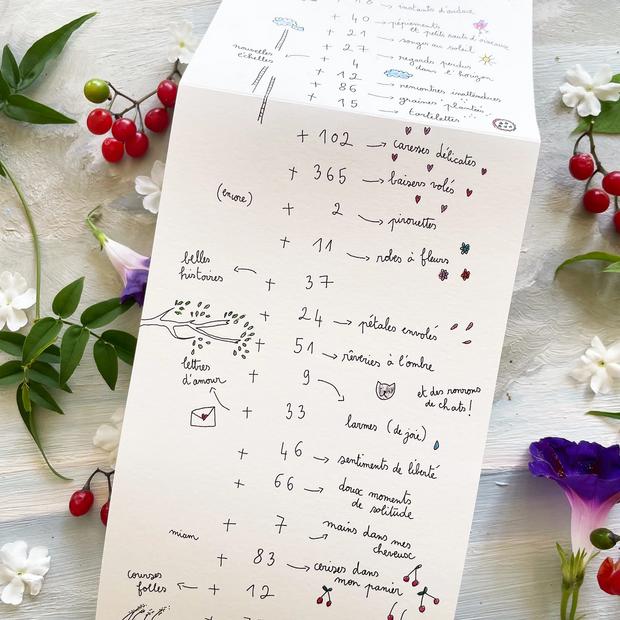 + 18 → instants d'audace
+ 40 → pépiements
et petits sauts d'oiseaux
+ 21 → songes au soleil
+ 27 → regards perdus
dans l'horizon
nouvelles
échelles ← + 4
+ 12
+ 86 → rencontres inattendues
+ 15 → graines plantées
tartelettes
+ 102 → caresses délicates
+ 365 → baisers volés
(encore) + 2 → pirouettes
+ 11 → robes à fleurs
belles
histoires ← + 37
+ 24 → pétales envolés
+ 51 → rêveries à l'ombre
+ 9 → larmes (de joie)
et des ronrons
de chats !
lettres
d'amour ← + 33
+ 46 → sentiments de liberté
+ 66 → doux moments
de solitude
+ 7 → mains dans mes
cheveux
miam + 83 → cerises dans
mon panier
courses
folles ← + 12